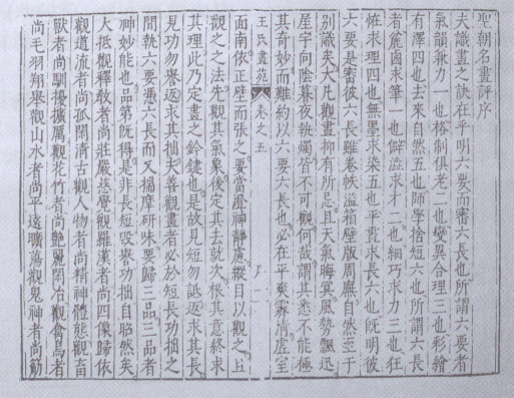 聖朝名畫評序
夫識畫之訣在乎明六要而審六長也所謂六要者
氣韻兼力一也格制俱老二也變異合理三也彩繪
有澤四也去來自然五也師學捨短六也所謂六長
者麄鹵求筆一也僻澁求才二也細巧求力三也狂
怪求理四也無墨求染五也平畫求長六也既明彼
六要是審彼六長雖卷帙溢箱壁版周廡自然至于
別識矣大凡觀畫抑有所忌且天氣晦冥風勢飄迅
屋宇向陰暮夜執燭皆不可觀何哉謂其悉不能極
其奇妙而難約以六要六長也必在平爽霽清虛室
王氏畫苑 卷之五
面南依正壁而張之要當澄神靜慮縱目以觀之且
觀之之法先觀其氣象後定其去就次根其意終求
其理此乃定畫之鈐鍵也是故見短勿詆返求其長
見功勿譽返求其拙夫善觀畫者必於短長功拙之
間執六要憑六長而又揣摩研味要歸三品三品者
神妙能也品第既得是非長短毀譽功拙自昭然矣
大抵觀釋教者尚莊嚴慈覺觀羅漢者尚四像歸依
觀道流者尚孤閑清古觀人物者尚精神體態觀畜
獸者尚馴擾獷厲觀花竹者尚艷麗閑冶觀禽鳥者
尚毛羽翔舉觀山水者尚平遠曠蕩觀鬼神者尚筋